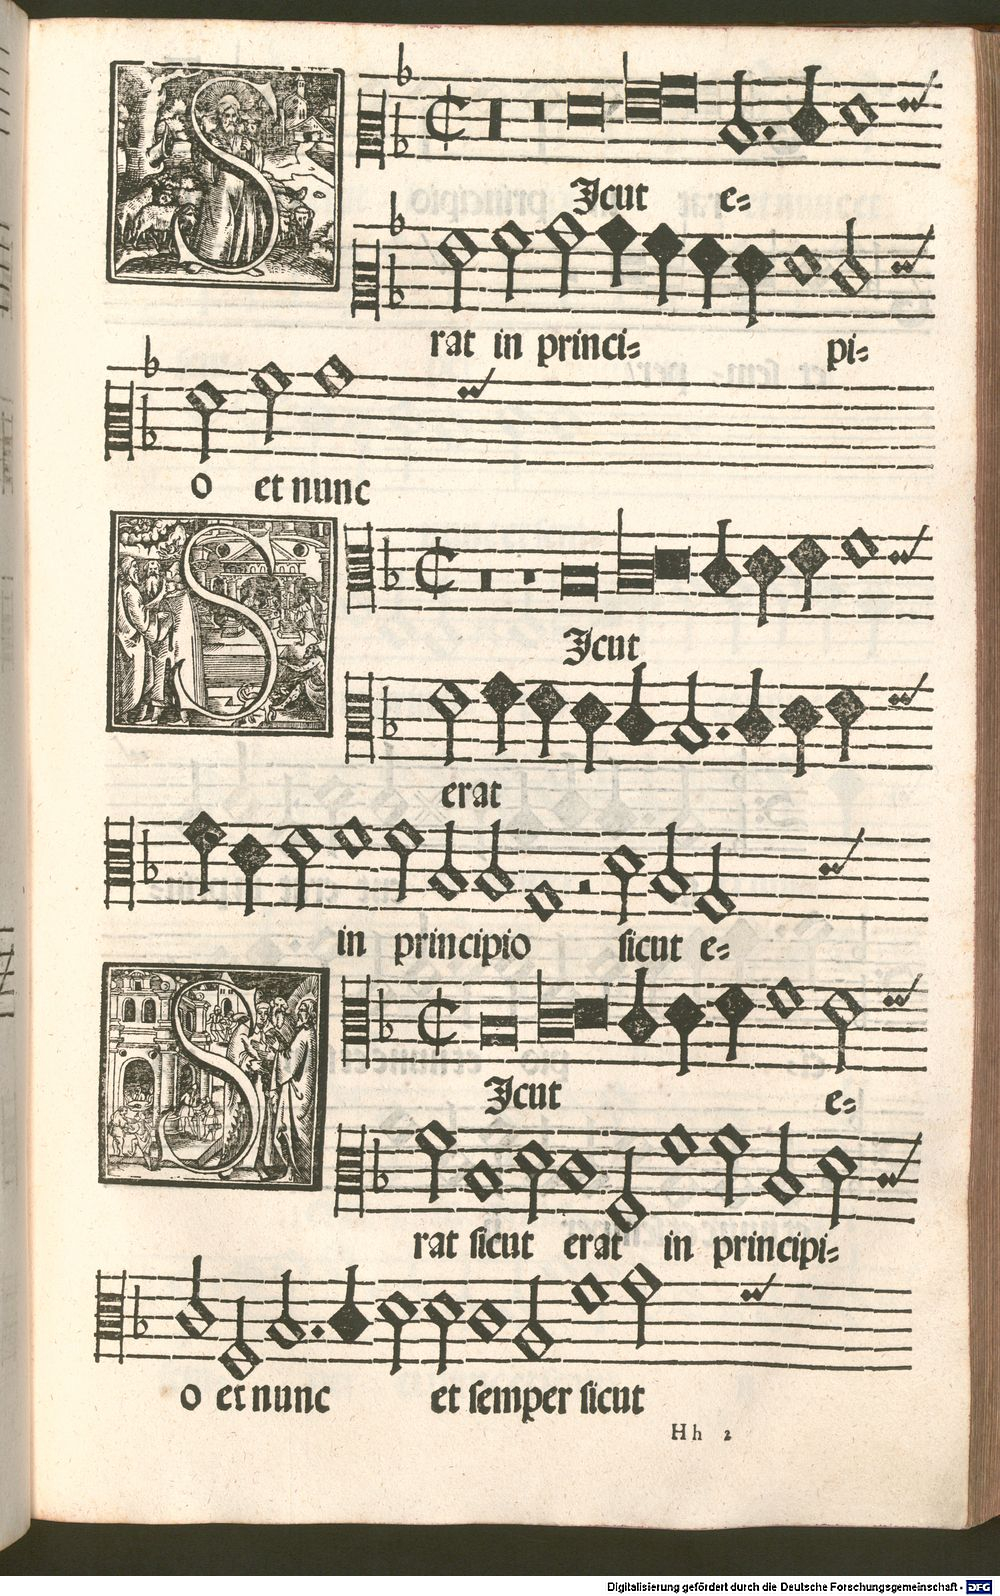 SJcut e=
rat in princi= pi=
o et nunc
SJcut
erat
in principio sicut e=
SJcut e=
rat sicut erat in principi=
o et nunc et semper sicut
Hh 2
Digitalisierung gefördert durch die Deutsche Forschungsgemeinschaft - DFG